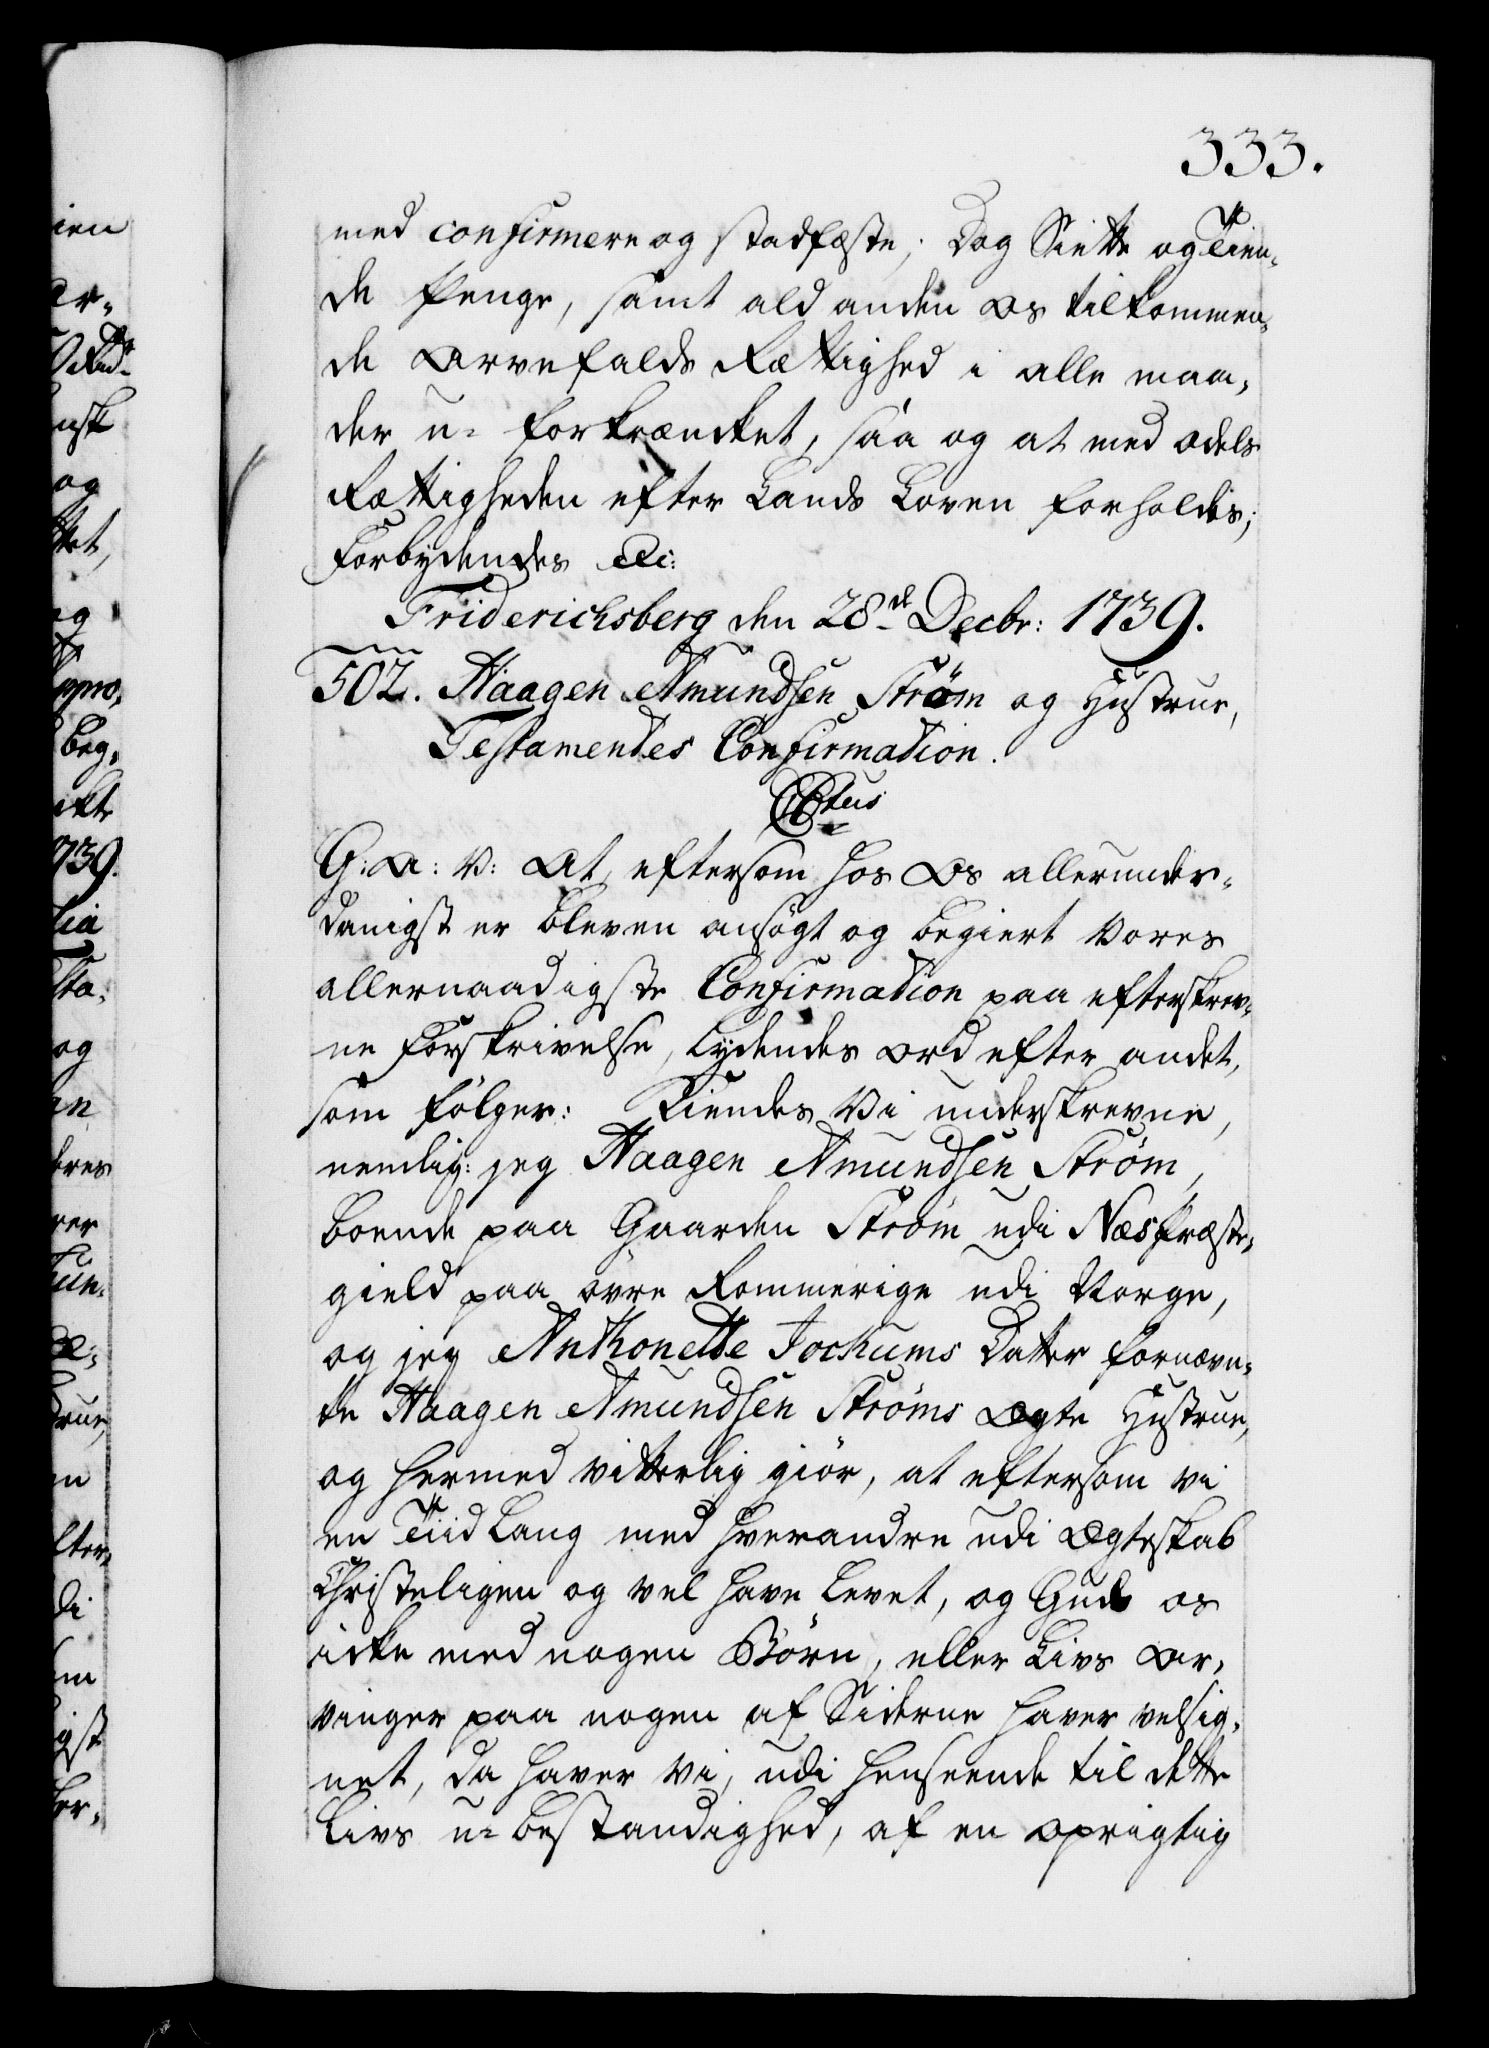 333.
med confirmere og stadfæste; Dog Siette og Tien-
de Penge, samt ald anden Os tilkommen-
de Arvefalds Rettighed i alle maa-
der u-forkrencket, saa og at med odels
Rettigheden efter Lands Loven forholdes;
Forbydendes etc:
Friderichsberg den 28de Decbr: 1739.
502. Haagen Amundsen Strøm og Hustrue,
Testamentes Confirmation.
C6tus
G: A: V: At, eftersom hos Os allerunder-
danigst er bleven ansøgt og begiert Vores
allernaadigste Confirmation paa efterskrev-
ne Forskrivelse, lydendes Ord efter andet,
som følger: Kiendes Vi underskrevne,
nemlig: jeg Haagen Amundsen Strøm,
boende paa Gaarden Strøm udi Næs Præste-
gield paa øvre Rommerige udi Norge,
og jeg Anthonette Jochums Datter fornævn-
te Haagen Amundsen Strøms Ægte Hustrue,
og hermed vitterlig giør, at eftersom vi
en Tiid lang med hverandre udi Ægteskab
Christeligen og vel have levet, og Gud os
icke med nogen Børn, eller Livs Ar-
vinger paa nogen af Siderne haver velsig-
net, da haver vi, udi henseende til dette
Livs u-bestandighed, af en oprigtig